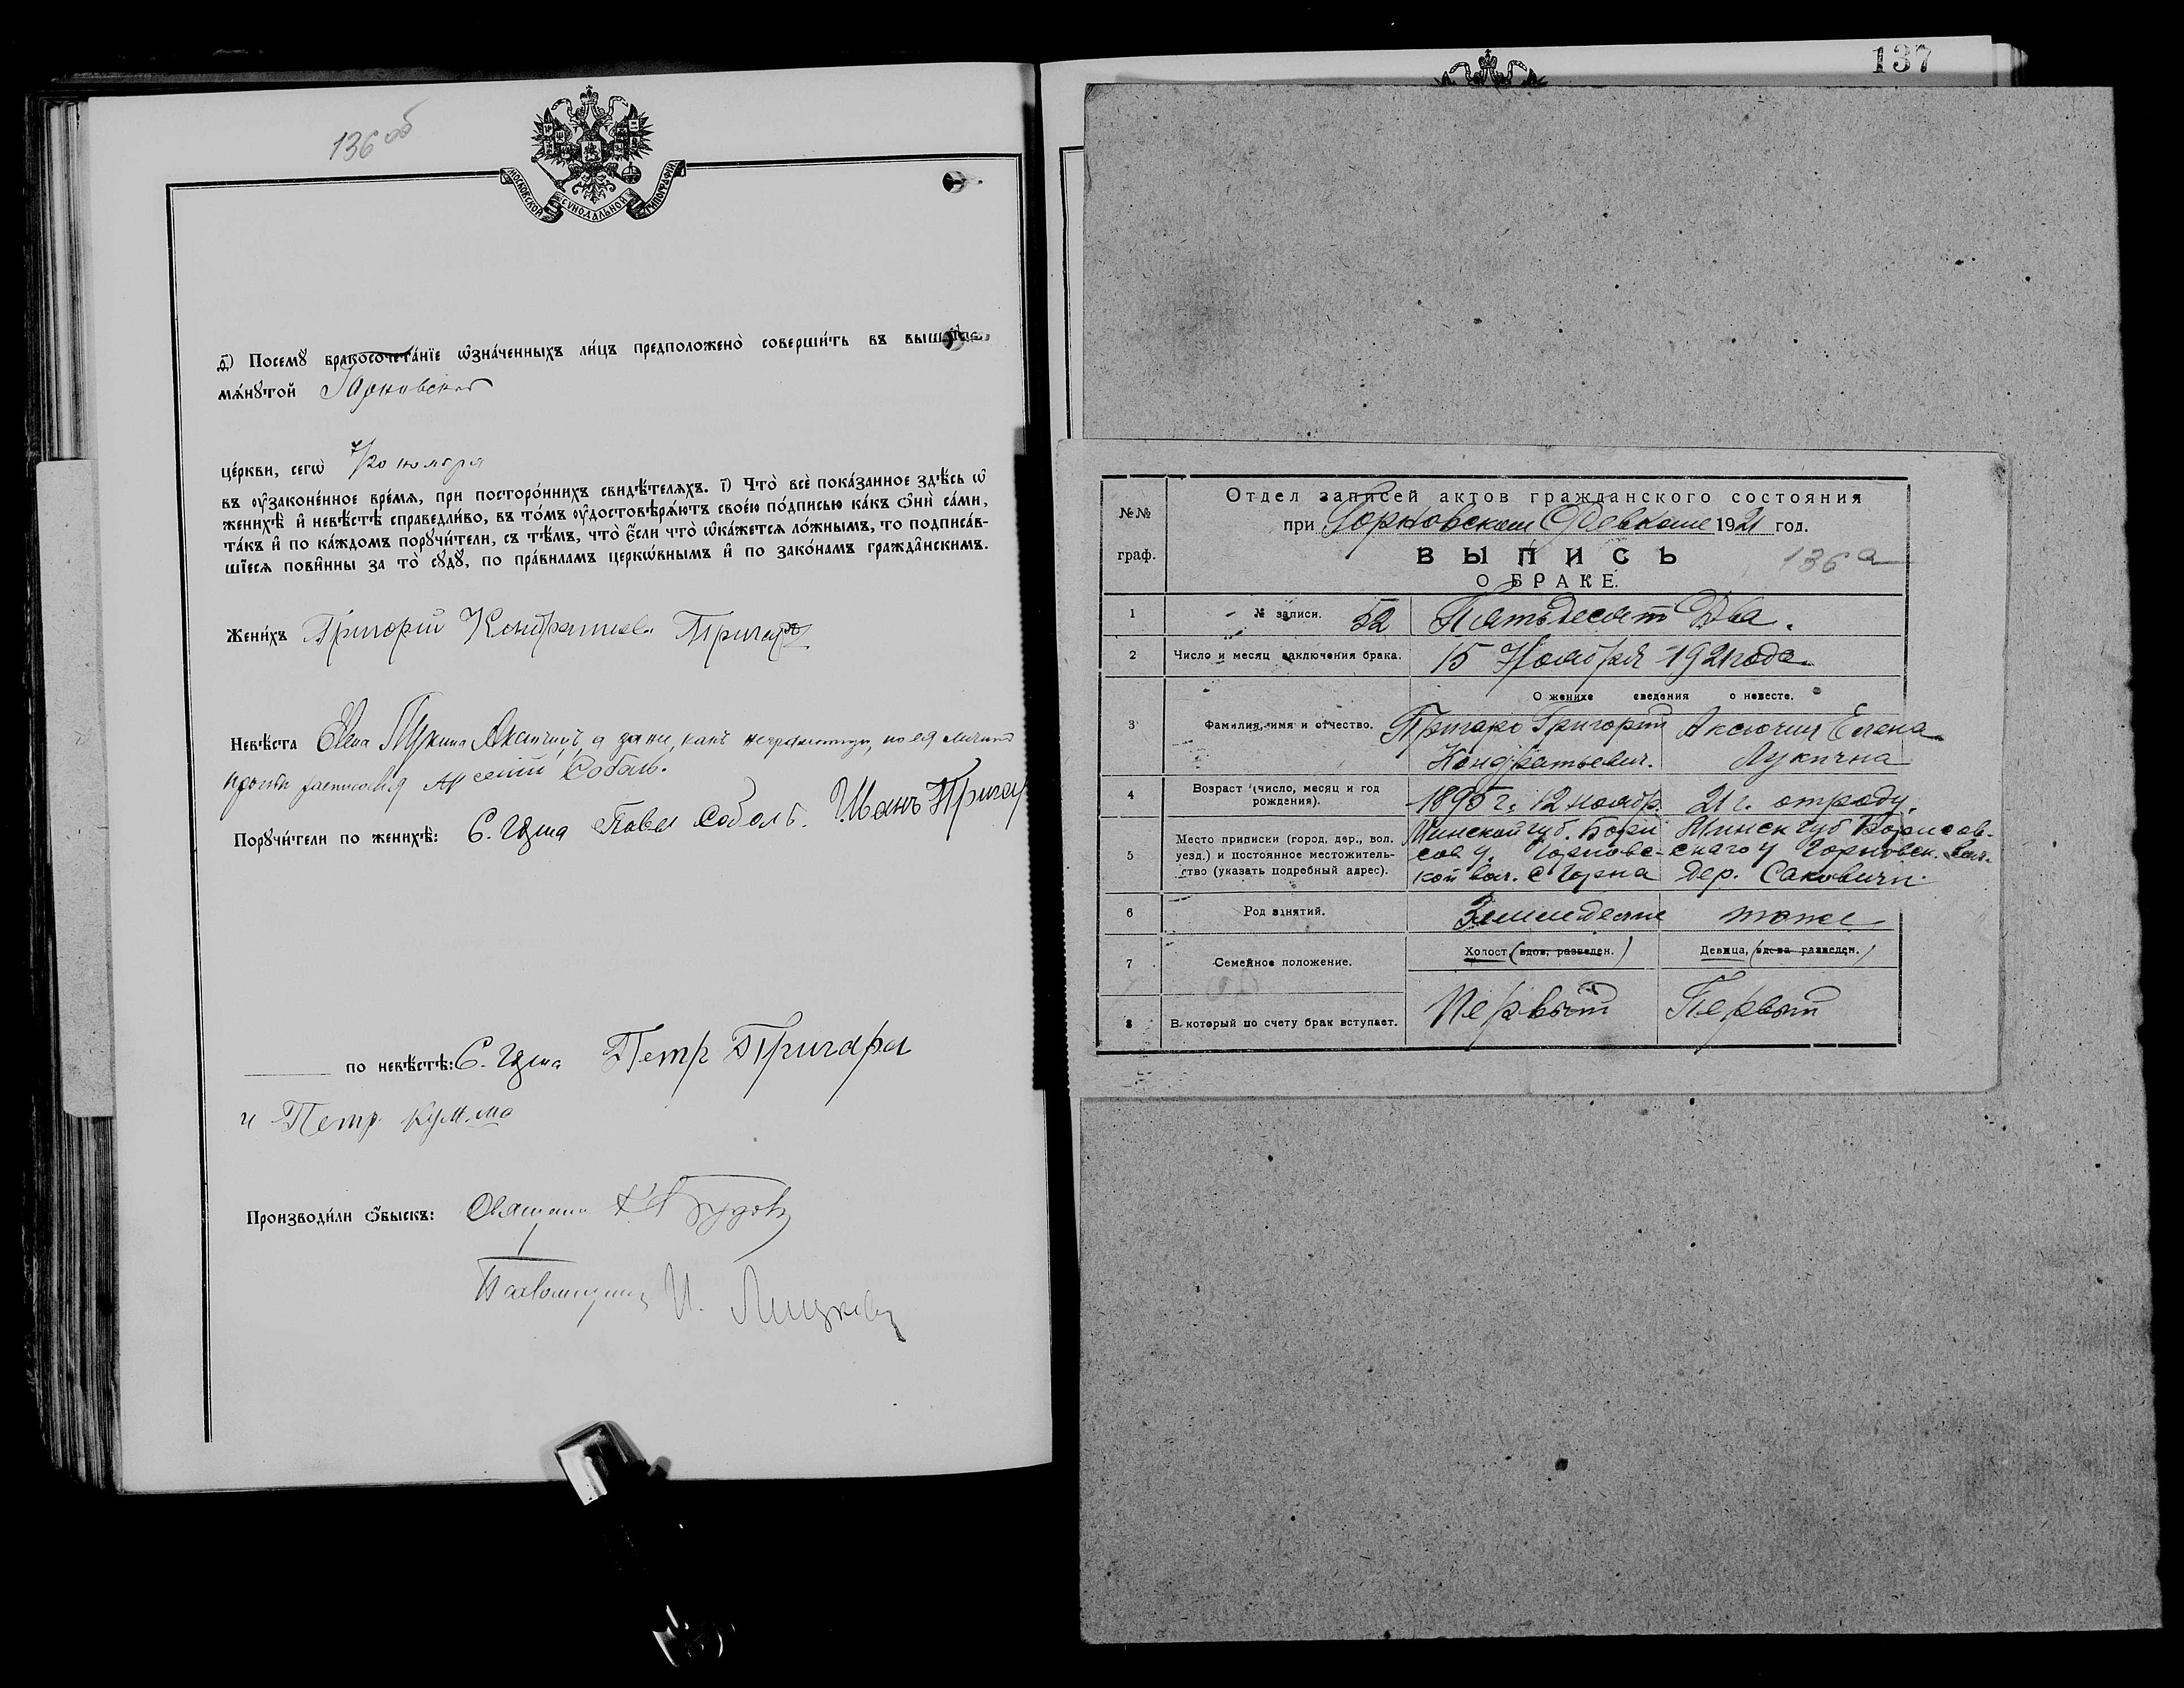 136 об
МОСКОВСКОЙ СѴНОДАЛЬНОЙ ТИПОГРАФІИ
д҃) Посемꙋ̀ бракосочета́нїе ѡ҆зна́ченныхъ ли́цъ предположено̀ соверши́ть въ
мѧ́нꙋтой Горновской
це́ркви, сегѡ̀ 7/20 ноября
въ ᲂу҆законе́нное вре́мѧ, при посторо́ннихъ свидѣ́телѧхъ. і҃) Что̀ всѐ пока́занное здѣ́сь ѡ҆
женихѣ̀ и҆ невѣ́стѣ справедли́во, въ то́мъ ᲂу҆достовѣрѧ́ютъ свое́ю по́дписью ка́къ ѻ҆нѝ са́ми,
та́къ и҆ по ка́ждомъ порꙋчи́тели, съ тѣ́мъ, что̀ є҆́сли что̀ ѡ҆ка́жетсѧ ло́жнымъ, то подписа́в-
шїесѧ пови́нны за то̀ сꙋдꙋ̀, по пра́виламъ церко́внымъ и҆ по зако́намъ гражда́нскимъ.
Жени́хъ Григорій Кондратьев Пригаръ
Невѣ́ста Елена Лукина Аксючицъ, а за нея, какъ неграмотную, по ея личной
просьбе расписался Арсеній Соболь.
Порꙋчи́тели по женихѣ̀: С. Павел Соболь. Иванъ Пригар
по невѣ́стѣ: С. Петр Пригара
и Петр
Производи́ли ѻ҆́быскъ: Священник
Псаломщикъ И.
137
№№ граф.
Отдел записей актов гражданского состояния
при Горновском 1921 год.
ВЫПИСЬ
136 а
О БРАКЕ.
1 № записи. 52 Пятьдесят Два.
2 Число и месяц заключения брака. 15 Ноября 1921 года
О женихе сведения о невесте.
3 Фамилия, имя и отчество. Пригаро Григорий Аксючиц Елена
Кондратьевич. Лукична
4 Возраст (число, месяц и год рождения). 1895 г. 12 ноябр. 21 г. отроду.
5 Место приписки (город, дер., вол. Минской губ. Бори Минск губ Борисов-
уезд.) и постоянное местожитель- сов у. Горновс- скаго у Горновск. вол.
ство (указать подробный адрес). кой вол. с Горна дер. Саковичи
6 Род занятий. Земледелие тоже
7 Семейное положение. Холост (вдов, разведен.) Девица, (вдова разведен.)
8 В который по счету брак вступает. Первый Первый